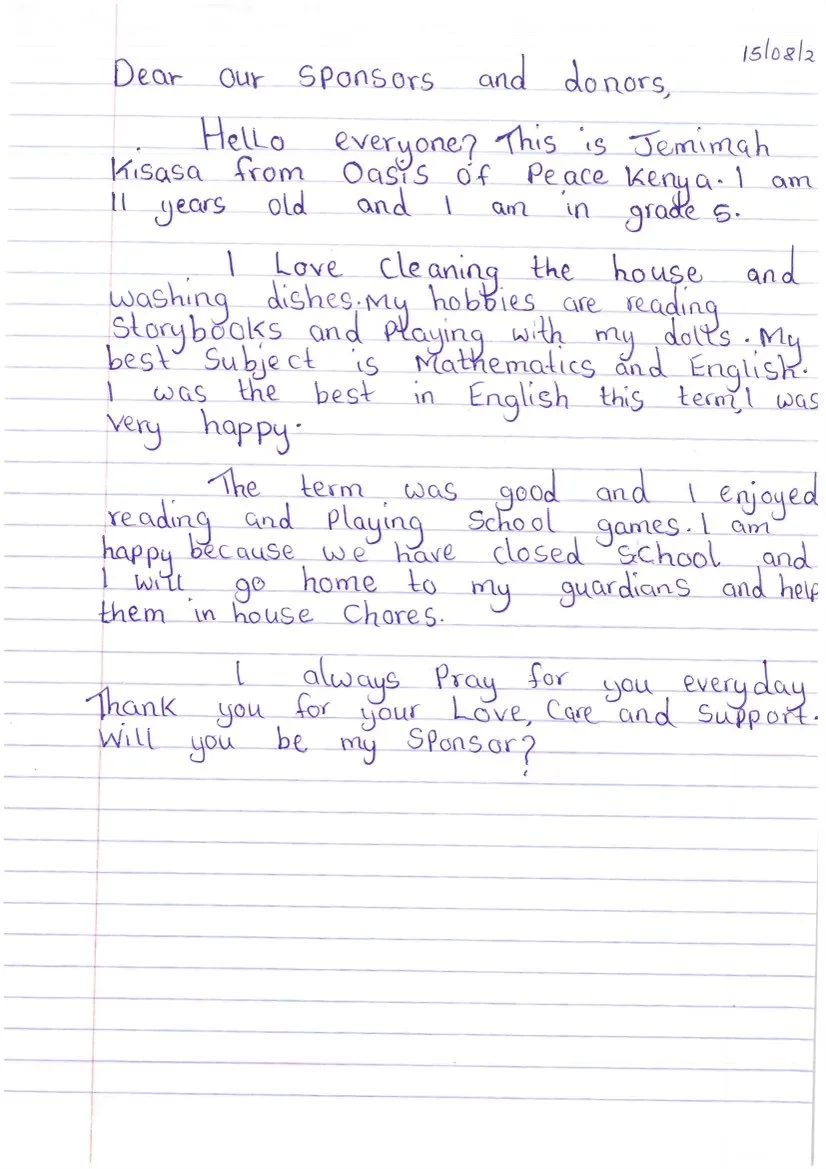 15/08/2
Dear our sponsors and donors,
Hello everyone? This is Jemimah
Kisasa from Oasis of Peace Kenya. I am
11 years old and I am in grade 5.
I Love cleaning the house and
washing dishes. My hobbies are reading
Storybooks and playing with my dolls. My
best Subject is Mathematics and English.
I was the best in English this term, I was
very happy.
The term was good and I enjoyed
reading and Playing School games. I am
happy because we have closed school and
I will go home to my guardians and help
them in house Chores.
I always Pray for you everyday
Thank you for your Love, Care and Support.
Will you be my Sponsor?